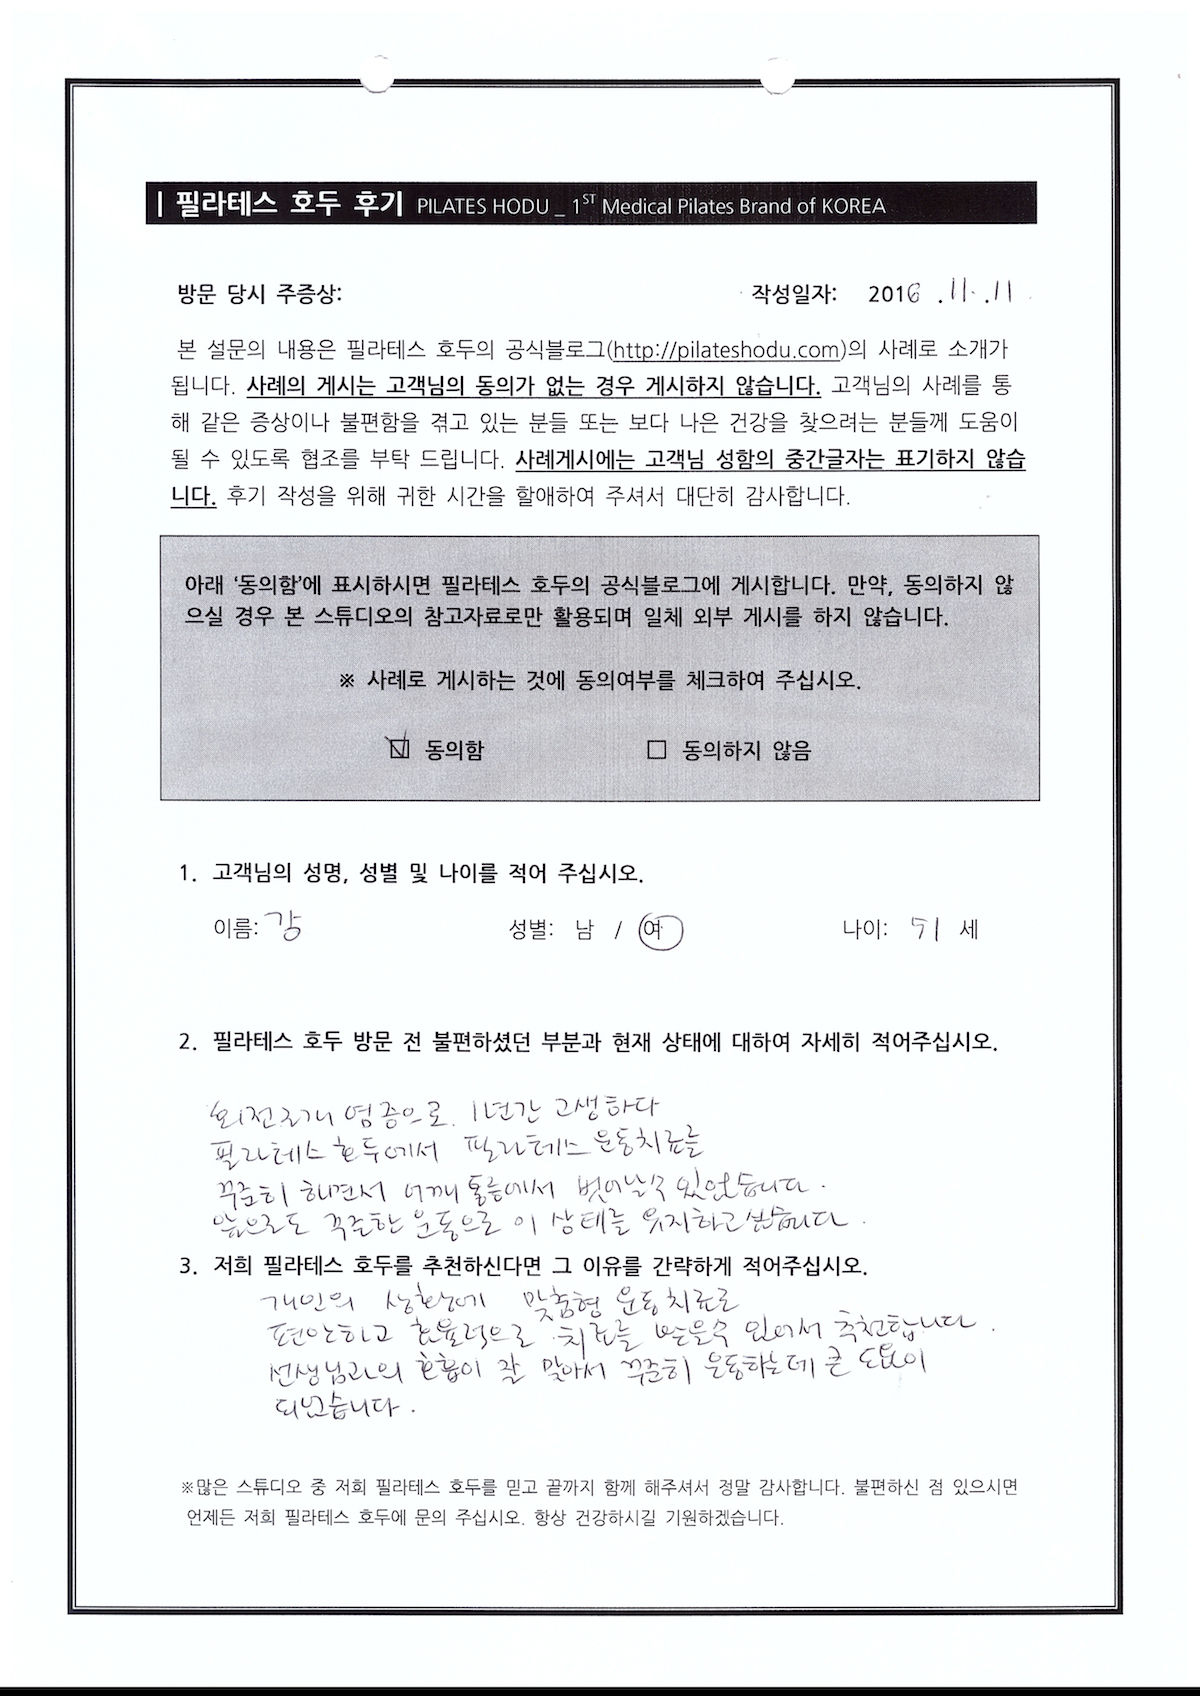 | 필라테스 호두 후기 PILATES HODU _ 1ST Medical Pilates Brand of KOREA
방문 당시 주증상: 작성일자: 2016 .11. .11
본 설문의 내용은 필라테스 호두의 공식블로그(http://pilateshodu.com)의 사례로 소개가
됩니다. 사례의 게시는 고객님의 동의가 없는 경우 게시하지 않습니다. 고객님의 사례를 통
해 같은 증상이나 불편함을 겪고 있는 분들 또는 보다 나은 건강을 찾으려는 분들께 도움이
될 수 있도록 협조를 부탁 드립니다. 사례게시에는 고객님 성함의 중간글자는 표기하지 않습
니다. 후기 작성을 위해 귀한 시간을 할애하여 주셔서 대단히 감사합니다.
아래 ‘동의함’에 표시하시면 필라테스 호두의 공식블로그에 게시합니다. 만약, 동의하지 않
으실 경우 본 스튜디오의 참고자료로만 활용되며 일체 외부 게시를 하지 않습니다.
※ 사례로 게시하는 것에 동의여부를 체크하여 주십시오.
☑ 동의함 ☐ 동의하지 않음
1. 고객님의 성명, 성별 및 나이를 적어 주십시오.
이름: 강 성별: 남 / 여 나이: 51 세
2. 필라테스 호두 방문 전 불편하셨던 부분과 현재 상태에 대하여 자세히 적어주십시오.
회전근개 염증으로 1년간 고생하다
필라테스 호두에서 필라테스 운동치료를
꾸준히 하면서 어깨 통증에서 벗어날 수 있었습니다.
앞으로도 꾸준한 운동으로 이 상태를 유지하고 싶습니다.
3. 저희 필라테스 호두를 추천하신다면 그 이유를 간략하게 적어주십시오.
개인의 상황에 맞춤형 운동치료로
편안하고 효율적으로 치료를 받을수 있어서 추천합니다.
선생님과의 호흡이 잘 맞아서 꾸준히 운동하는데 큰 도움이
되었습니다.
※많은 스튜디오 중 저희 필라테스 호두를 믿고 끝까지 함께 해주셔서 정말 감사합니다. 불편하신 점 있으시면
언제든 저희 필라테스 호두에 문의 주십시오. 항상 건강하시길 기원하겠습니다.